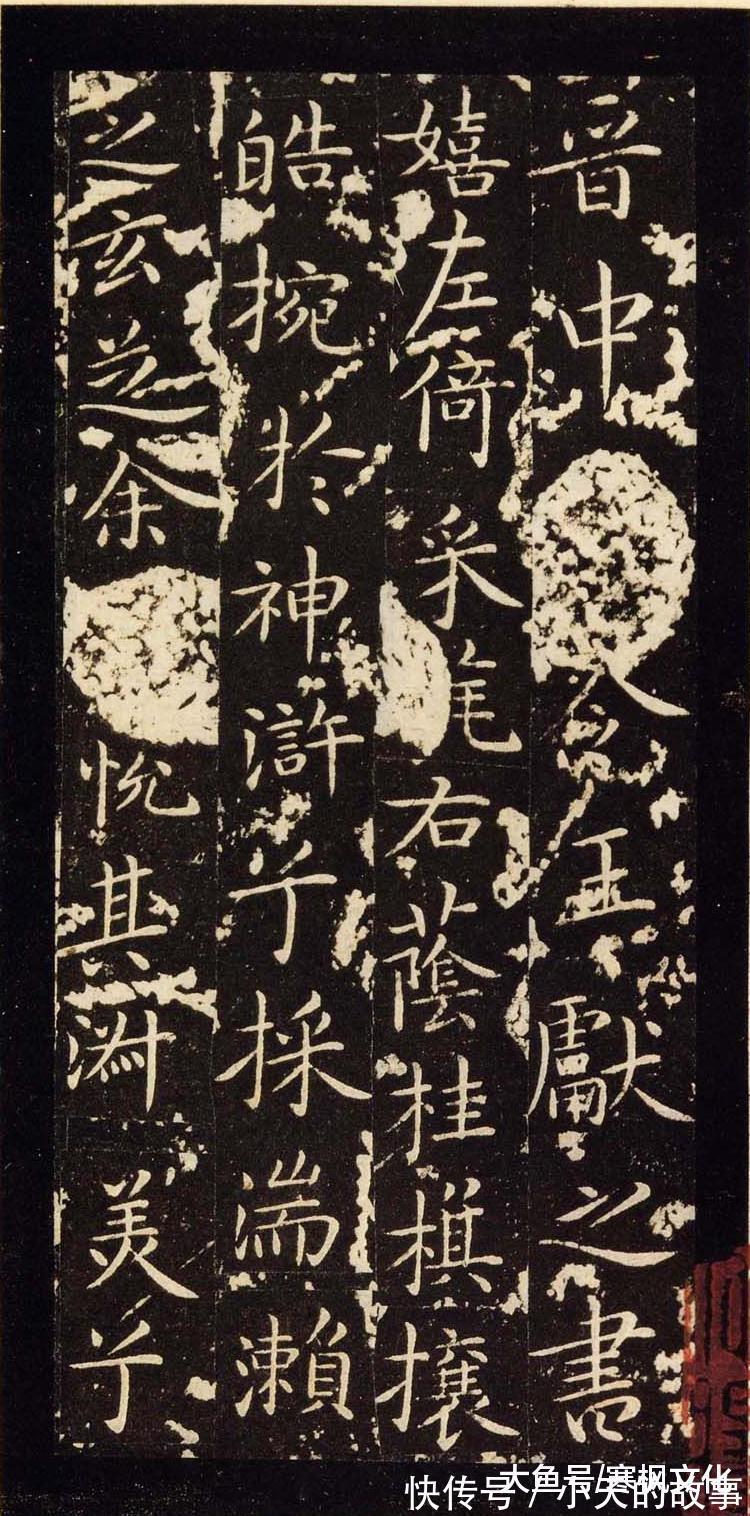 晋中令王獻之書
嬉左倚采旄右蔭桂棋攘
皓捥於神滸兮採湍瀨
之玄芝余悅其淑美兮
大鱼号/寒枫文化
快传号 / 小天的故事